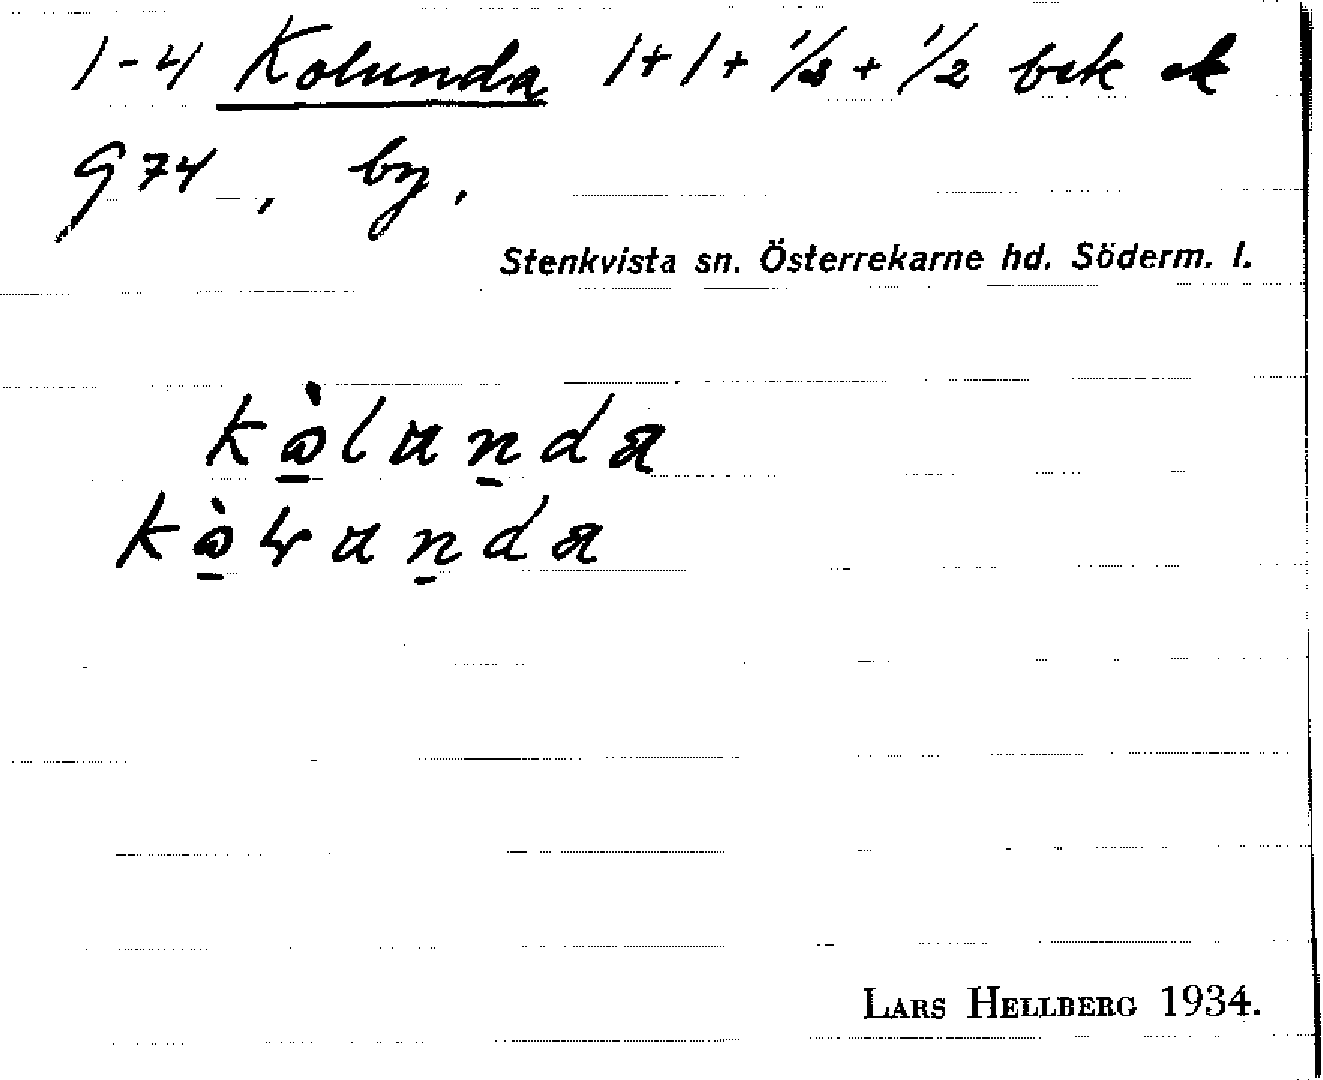 1-4 Kolunda 1+1+1/2+1/2 bek ek
G74, by.
Stenkvista sn. Österrekarne hd. Söderm. l.
kòlunda
Lars Hellberg 1934.